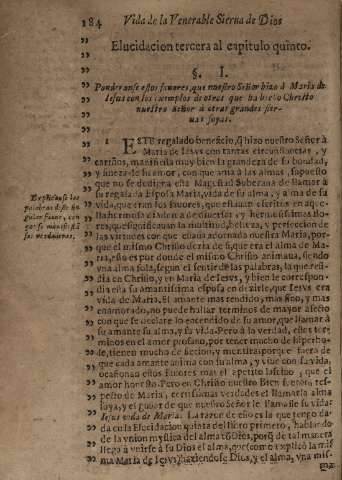 184 Vida de la Venerable Sierva de Dios
Elucidacion tercera al capitulo quinto.
§. I.
Ponderanse estos favores, que nuestro Señor hizo à Maria de
Iesus con los exemplos de otros que ha hecho Christo
nuestro Señor à otras grandes sier-
vas suyas.
1 ESTE regalado beneficio, q̃ hizo nuestro Señor à
Maria de Iesus con tantas circunstancias, y
cariños, manifiesta muy bien la grandeza de su bondad,
y fineza de su amor, con que ama à las almas, supuesto
que no se dedigna esta Magestad Soberana de llamar à
su regalada Esposa Maria, vida de su alma, y alma de su
vida, que eran los favores, que estavan escritos en aque-
res, que significavan la multitud, belleza, y perfeccion de
las virtudes con que estava adornada nuestra Maria, por-
que el mismo Christo dezia de si, que era el alma de Ma-
ria, esto es por donde el mismo Christo animava, siendo
vna alma sola, segun el sentir de las palabras, la que resi-
dia en Christo, y en Maria de Iesvs, y bien le correspon-
dia esta su amantissima esposa en dezirle, que Iesvs era
vida de Maria. El amante mas rendido, mas fino, y mas
enamorado, no puede hallar terminos de mayor afecto
con que se declare lo encendido de su amor, que llamar à
su amante su alma, y su vida. Pero à la verdad, estos ter-
minos en el amor profano, por tener mucho de hiperbo-
le, tienen mucho de ficcion, y mentira; porque fuera de
que cada amante anima con su alma, y vive con su vida,
ocasionan estos favores mas el apetito lascivo, que el
amor honesto. Pero en Christo nuestro Bien fueron res-
pecto de Maria, certissimas verdades el llamarla alma
suya, y el gustar de que nuestro Señor le llamase su vida:
Iesus vida de Maria. La razon de esto es la que tengo da-
da en la Elucidacion quinta del libro primero, hablando
de la vnion mystica del alma cõ Dios, porq̃ de tal manera
llega à vnirse à su Dios el alma, que (como explicò la mis-
ma Maria de Iesvs) haziendose Dios, y el alma, vna mis-
ma
Explicanse las
palabras deste sin
gular favor, con
que se manifiesta
ser verdaderas.